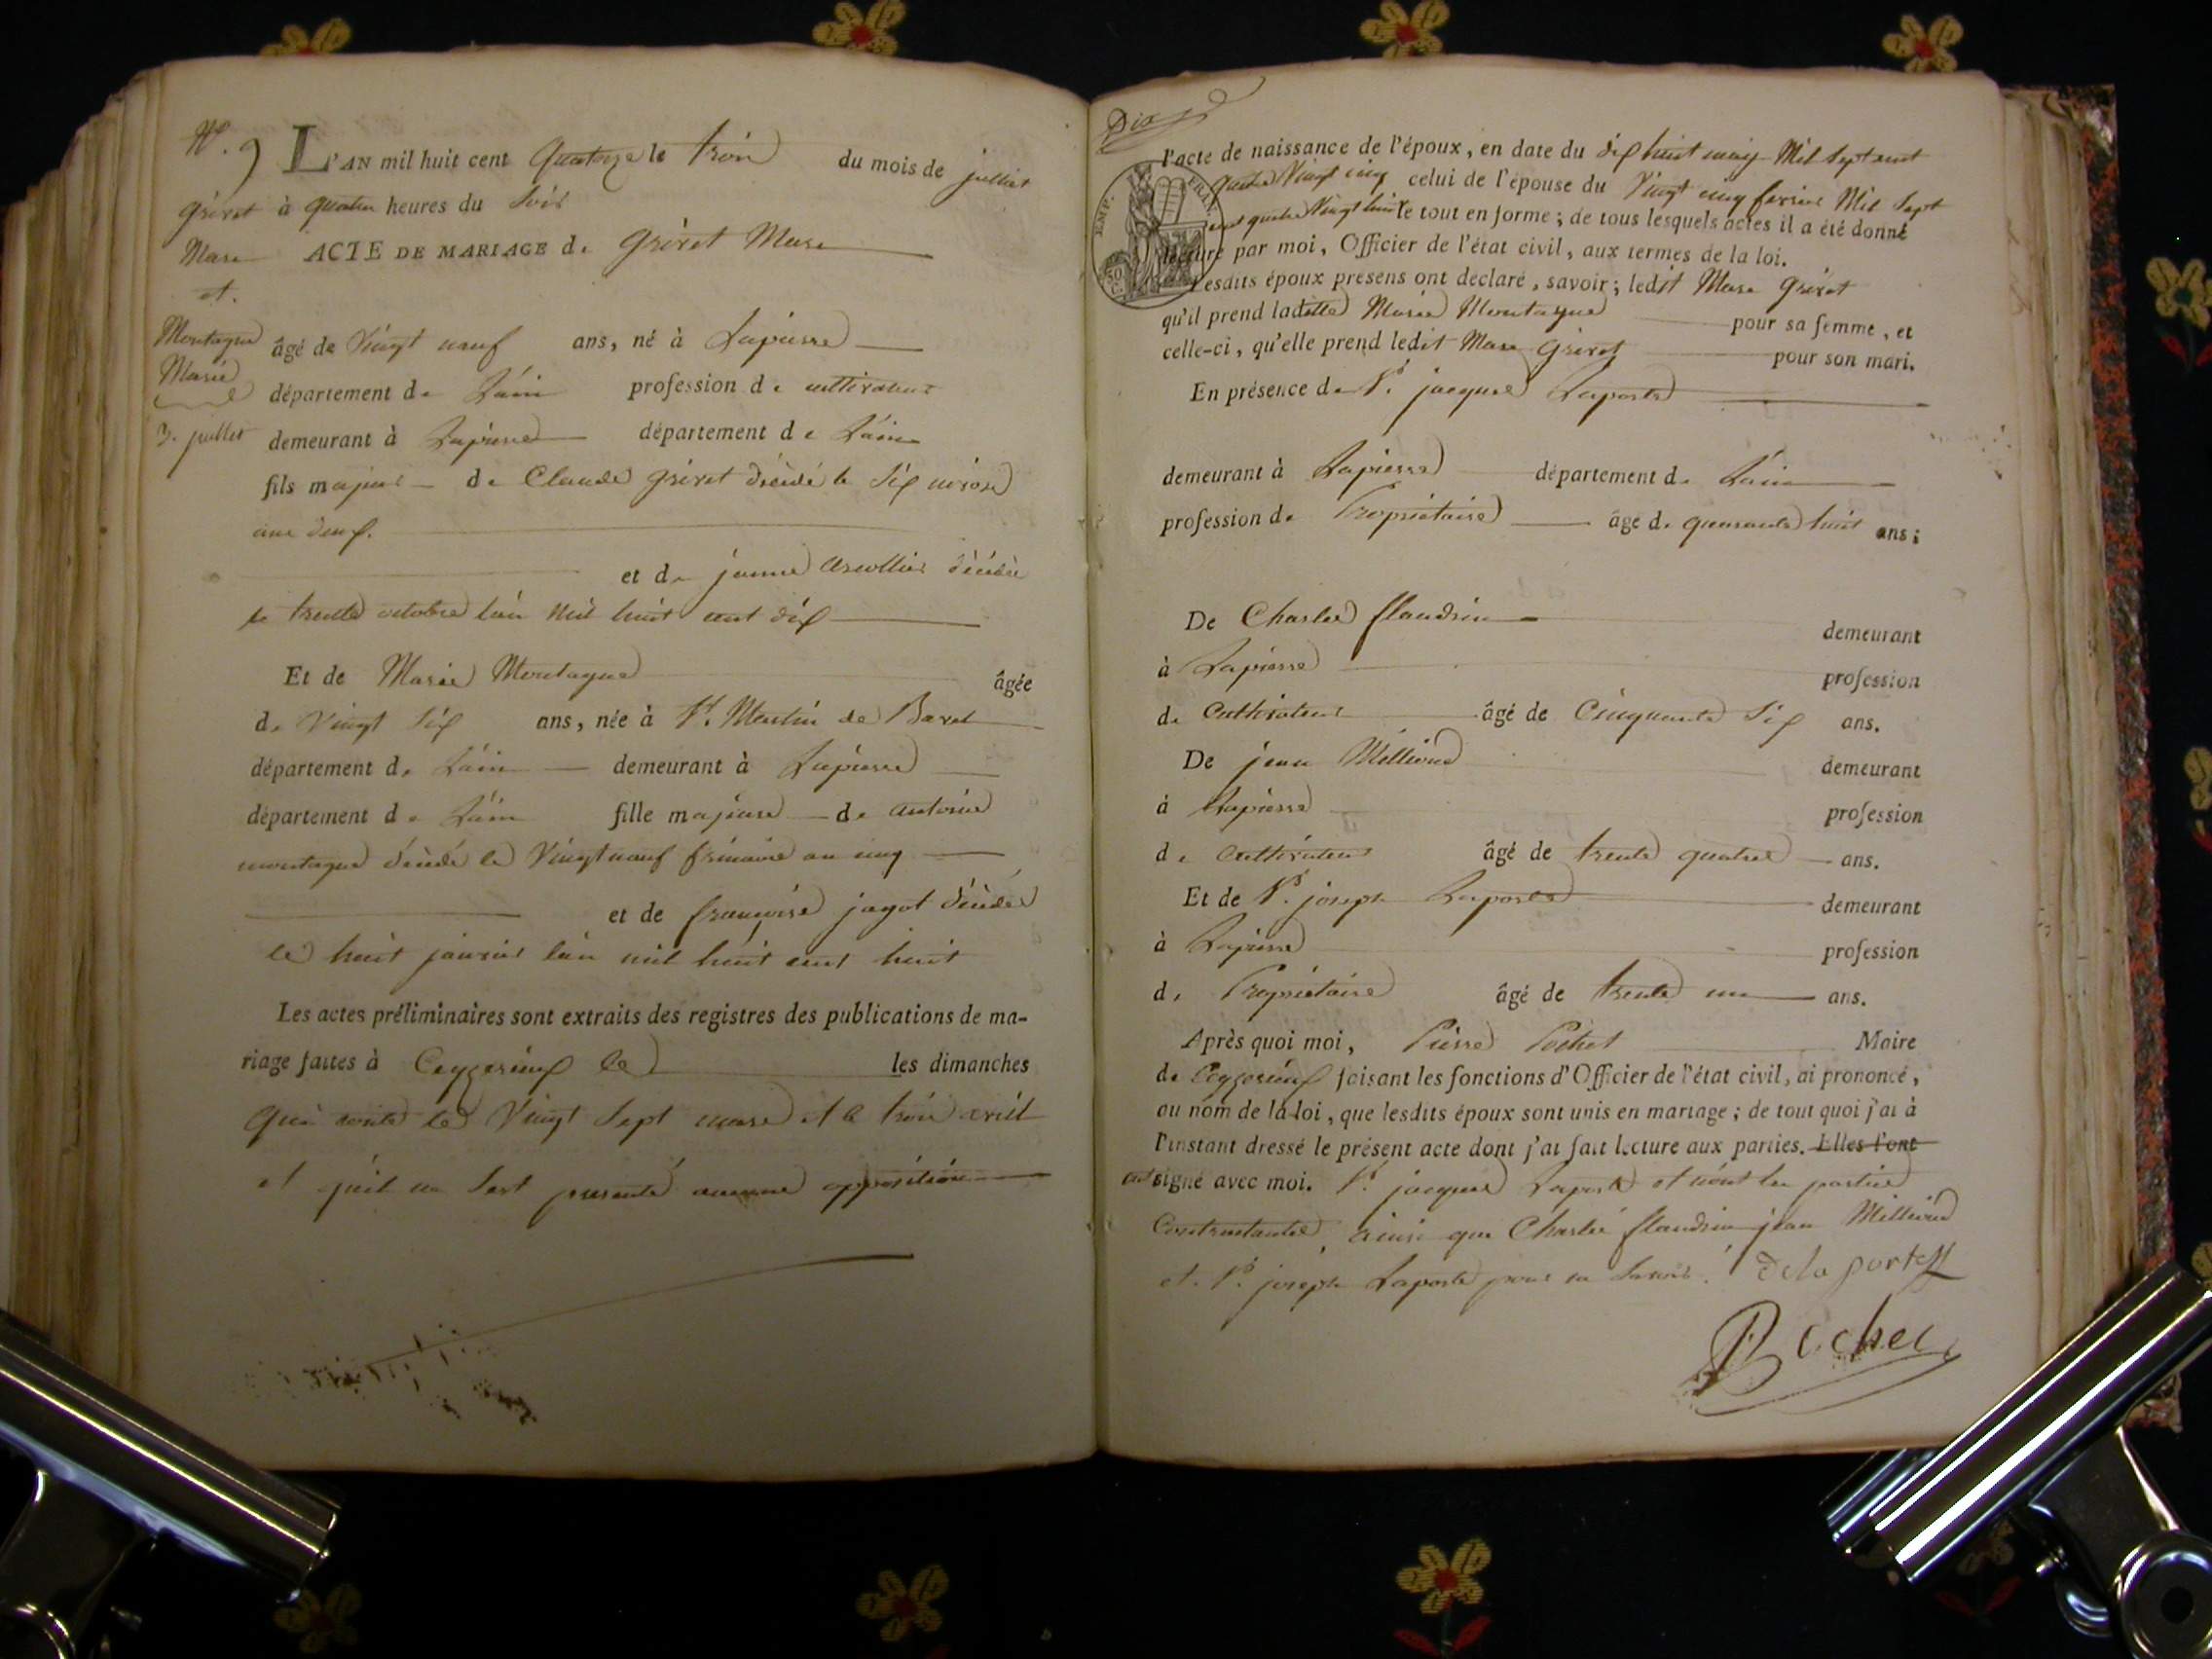 N°. 9
L'AN mil huit cent quatorze le trois du mois de juillet
Grivet à quatre heures du soir
Marc ACTE DE MARIAGE de Grivet Marc
et.
Montagne âgé de vingt neuf ans, né à Lapierre
Marie département de Láin profession de cultivateur
3. juillet demeurant à Lapierre département de Láin
fils majeur de Claude grivet décédé le six nivose
an deux.
et de jeanne décédée
le trente octobre lán mil huit cent dix
Et de Marie Montagne âgée
de vingt six ans, née à St. Martin de Bavel
département de Láin demeurant à Lapierre
département de Láin fille majeure de antoine
montagne décédé le vingt neuf frimaire an cinq
et de françoise jagot décédée
le huit janvier lán mil huit cent huit
Les actes préliminaires sont extraits des registres des publications de ma-
riage faites à Ceyzerieux le les dimanches
vingt sept mars et le trois avril
et qu'il ne s'est présenté aucune opposition
Dix
l'acte de naissance de l'époux, en date du dix huit may Mil sept cent
quatre vingt cinq celui de l'épouse du vingt cinq fevrier Mil sept
cent quatre vingt huit le tout en forme; de tous lesquels actes il a été donné
lecture par moi, Officier de l'état civil, aux termes de la loi.
EMP. FRAN.
50 C.
Lesdits époux présens ont déclaré, savoir; ledit Marc Grivet
qu'il prend laditte Marie Montagne pour sa femme, et
celle-ci, qu'elle prend ledit Marc Grivet pour son mari.
En présence de Sr. jacques Laporte
demeurant à Lapierre département de Láin
profession de Propriétaire âgé de quarante huit ans;
De Charles flandrin demeurant
à Lapierre profession
de Cultivateur âgé de Cinquante six ans.
De jean Millioud demeurant
à Lapierre profession
de Cultivateur âgé de trente quatre ans.
Et de Sr. joseph Laporte demeurant
à Lapierre profession
de Propriétaire âgé de trente un ans.
Après quoi moi, Pierre Pochet Maire
de Ceyzerieux faisant les fonctions d'Officier de l'état civil, ai prononcé,
au nom de la loi, que lesdits époux sont unis en mariage; de tout quoi j'ai à
l'instant dressé le présent acte dont j'ai fait lecture aux parties. Elles l'ont
signé avec moi. Sr. jacques Laporte et non les parties
Contractantes, ainsi que Charles flandrin jean Millioud
et Sr. joseph Laporte pour ne savoir. Delaporte
Pochet